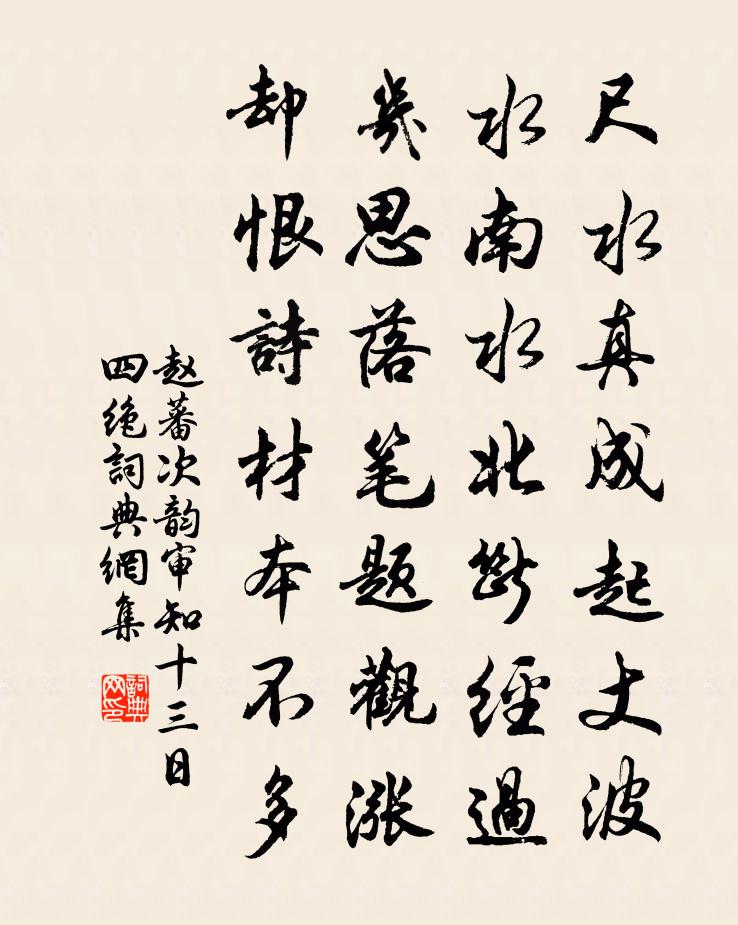 尺水真成起丈波
水南水北断經過
幾思落笔題觀漲
却恨詩材本不多
赵蕃次韵审知十三日
四绝詞典網集
詞典网印